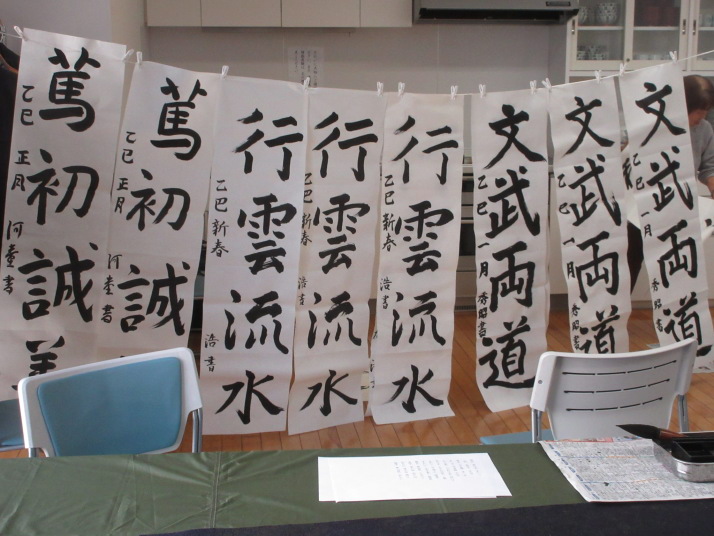 文武両道
乙巳 一月 秀昭書
文武両道
乙巳 一月 秀昭書
文武両道
乙巳 一月 秀昭書
行雲流水
乙巳 新春 浩書
行雲流水
乙巳 新春 浩書
行雲流水
乙巳 新春 浩書
篤初誠
乙巳 正月
篤初誠美
乙巳 正月